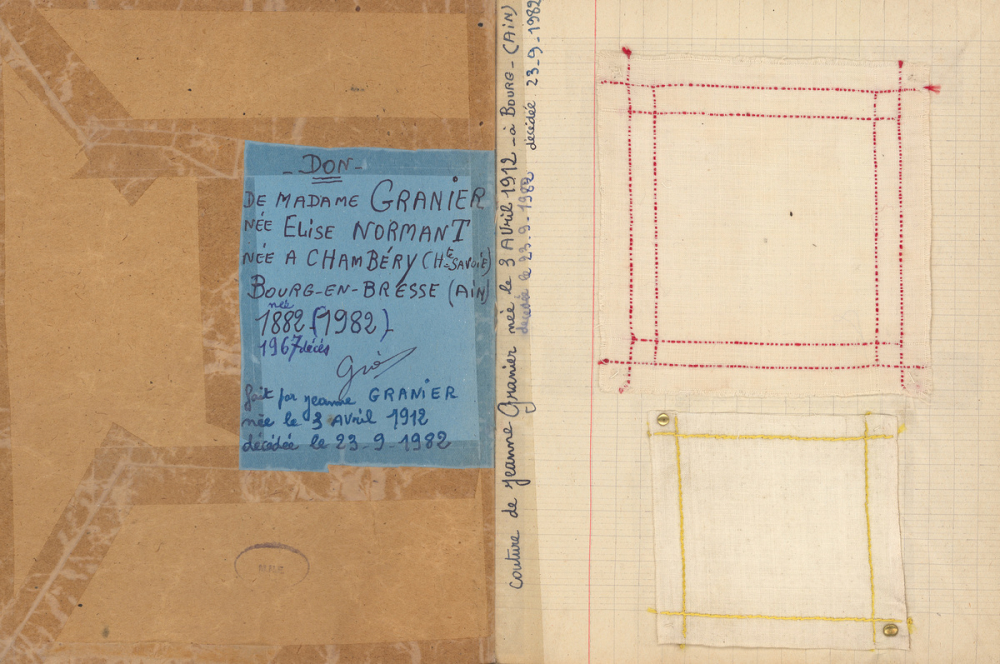 - DON -
DE MADAME GRANIER
NÉE ELISE NORMANT
NÉE A CHAMBÉRY (Hte SAVOIE)
BOURG-EN-BRESSE (AIN)
née
1882 (1982)
1967 décès
fait par Jeanne GRANIER
née le 3 Avril 1912
décédée le 23-9-1982
couture de Jeanne Granier née le 3 Avril 1912 - à BOURG - (AIN)
décédée le 23.9.1982 décédée 23-9-1982